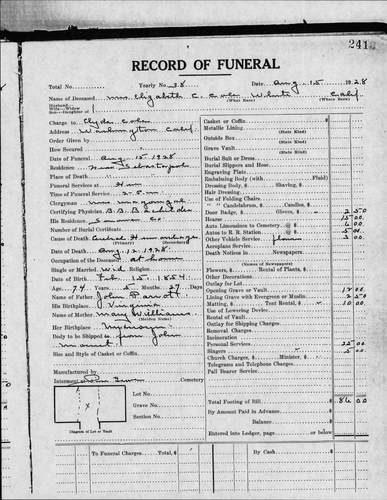 241
RECORD OF FUNERAL
Total No. Yearly No. 38 Date Aug 15 1928
Name of Deceased Mrs Elizabeth C. Cole White Calif
Husband— (What Race) (Where Born)
Wife—Widow
Son—Daughter of
Charge to Clyde Cole
Address Calif
Order Given by
How Secured
Date of Funeral Aug 15 1928
Residence Near Sebastopol
Place of Death
Funeral Services at
Time of 2 P.M.
Clergyman Mr
Certifying Physician
His Residence Sonoma Co
Number of Burial Certificate
Cause of Death Cerebral Hemorrhage
(Primary) (Secondary)
Date of Death Aug 12 1928
Occupation of the Deceased at home
Single or Married Wid Religion
Date of Birth Feb 15 1854
Age 74 Years 5 Months 27 Days
Name of Father John Parrott
His Birthplace Virginia
Name of Mother Mary Williams
(Maiden Name)
Her Birthplace
Body to be Shipped to
Size and Style of Casket or Coffin
Manufactured by
Interment Cemetery
Lot No.
Grave No.
Section No.
X
Diagram of Lot or Vault
Casket or Coffin
Metallic Lining
(State Kind)
Outside Box
(State Kind)
Grave Vault
(State Kind)
Burial Suit or Dress
Burial Slippers and Hose
Engraving Plate
Embalming Body (with Fluid)
Dressing Body, $ Shaving, $
Hair Dressing
Use of Folding Chairs
" " Candelabrum, $ Candles, $
Door Badge, $ Gloves, $ 2 50
Hearse 15 00
Auto Limousines to Cemetery @ $ 6 00
Autos to R. R. Station @ $ 5 00
Other Vehicle Service flowers 3 00
Aeroplane Service
Death Notices in Newspapers
(Names of Newspapers)
Flowers, $ Rental of Plants, $
Other Decorations
Outlay for Lot
Opening Grave or Vault 12 00
Lining Grave with Evergreen or Muslin 2 50
Matting, $ Tent Rental, $ 10 00
Use of Lowering Device
Rental of Vault
Outlay for Shipping Charges
Removal Charges
Incineration
Personal Services 25 00
Singers 5 00
Church Charges, $ Minister, $
Telegrams and Telephone Charges
Pall Bearer Service
Total Footing of Bill 86 00
By Amount Paid in Advance
Balance
Entered into Ledger, page or below
To Funeral Charges, Total $ By Cash $